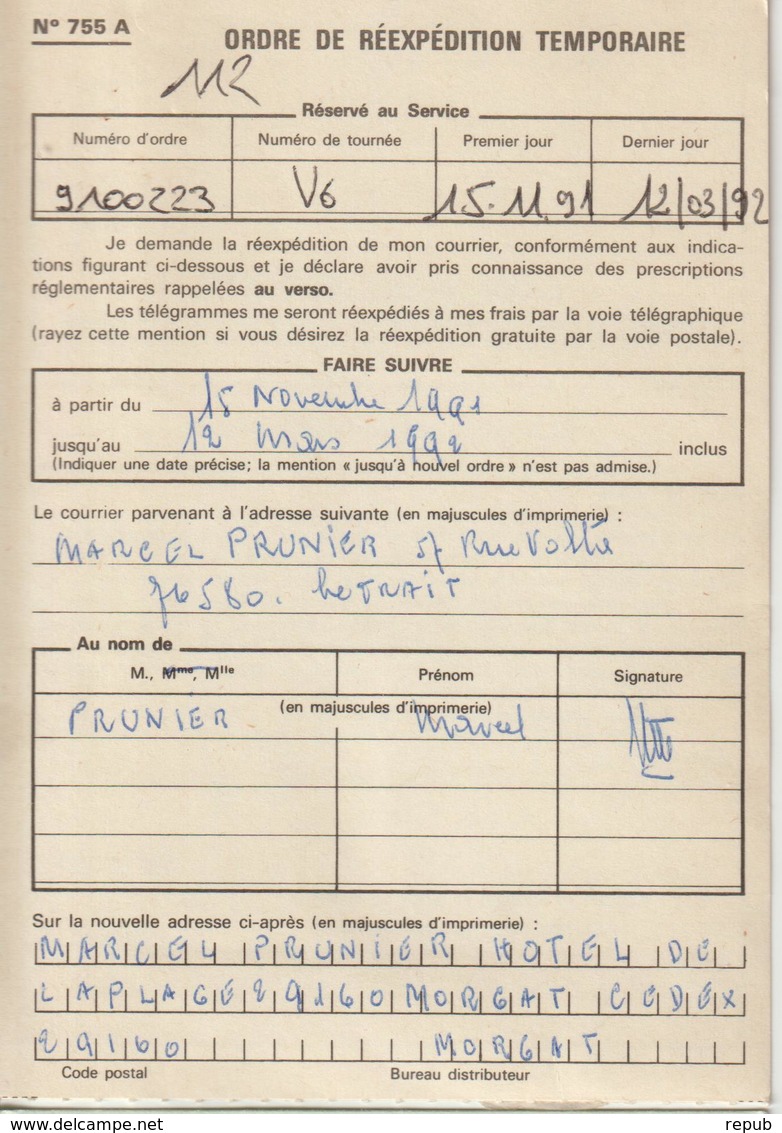 N° 755 A
ORDRE DE RÉEXPÉDITION TEMPORAIRE
112
Réservé au Service
Numéro d'ordre Numéro de tournée Premier jour Dernier jour
9100223 V6 15.11.91 12/03/92
Je demande la réexpédition de mon courrier, conformément aux indica-
tions figurant ci-dessous et je déclare avoir pris connaissance des prescriptions
réglementaires rappelées au verso.
Les télégrammes me seront réexpédiés à mes frais par la voie télégraphique
(rayez cette mention si vous désirez la réexpédition gratuite par la voie postale).
FAIRE SUIVRE
à partir du 15 Novembre 1991
jusqu'au 12 Mars 1992 inclus
(Indiquer une date précise; la mention « jusqu'à nouvel ordre » n'est pas admise.)
Le courrier parvenant à l'adresse suivante (en majuscules d'imprimerie) :
MARCEL PRUNIER 5/ Rue
76580. Le TRAIT
Au nom de
M., Mme, Mlle Prénom Signature
(en majuscules d'imprimerie)
PRUNIER Marcel
Sur la nouvelle adresse ci-après (en majuscules d'imprimerie) :
MARCEL PRUNIER HOTEL DE
LA PLAGE 29160 MORGAT CEDEX
29160 MORGAT
Code postal Bureau distributeur
www.delcampe.net repub